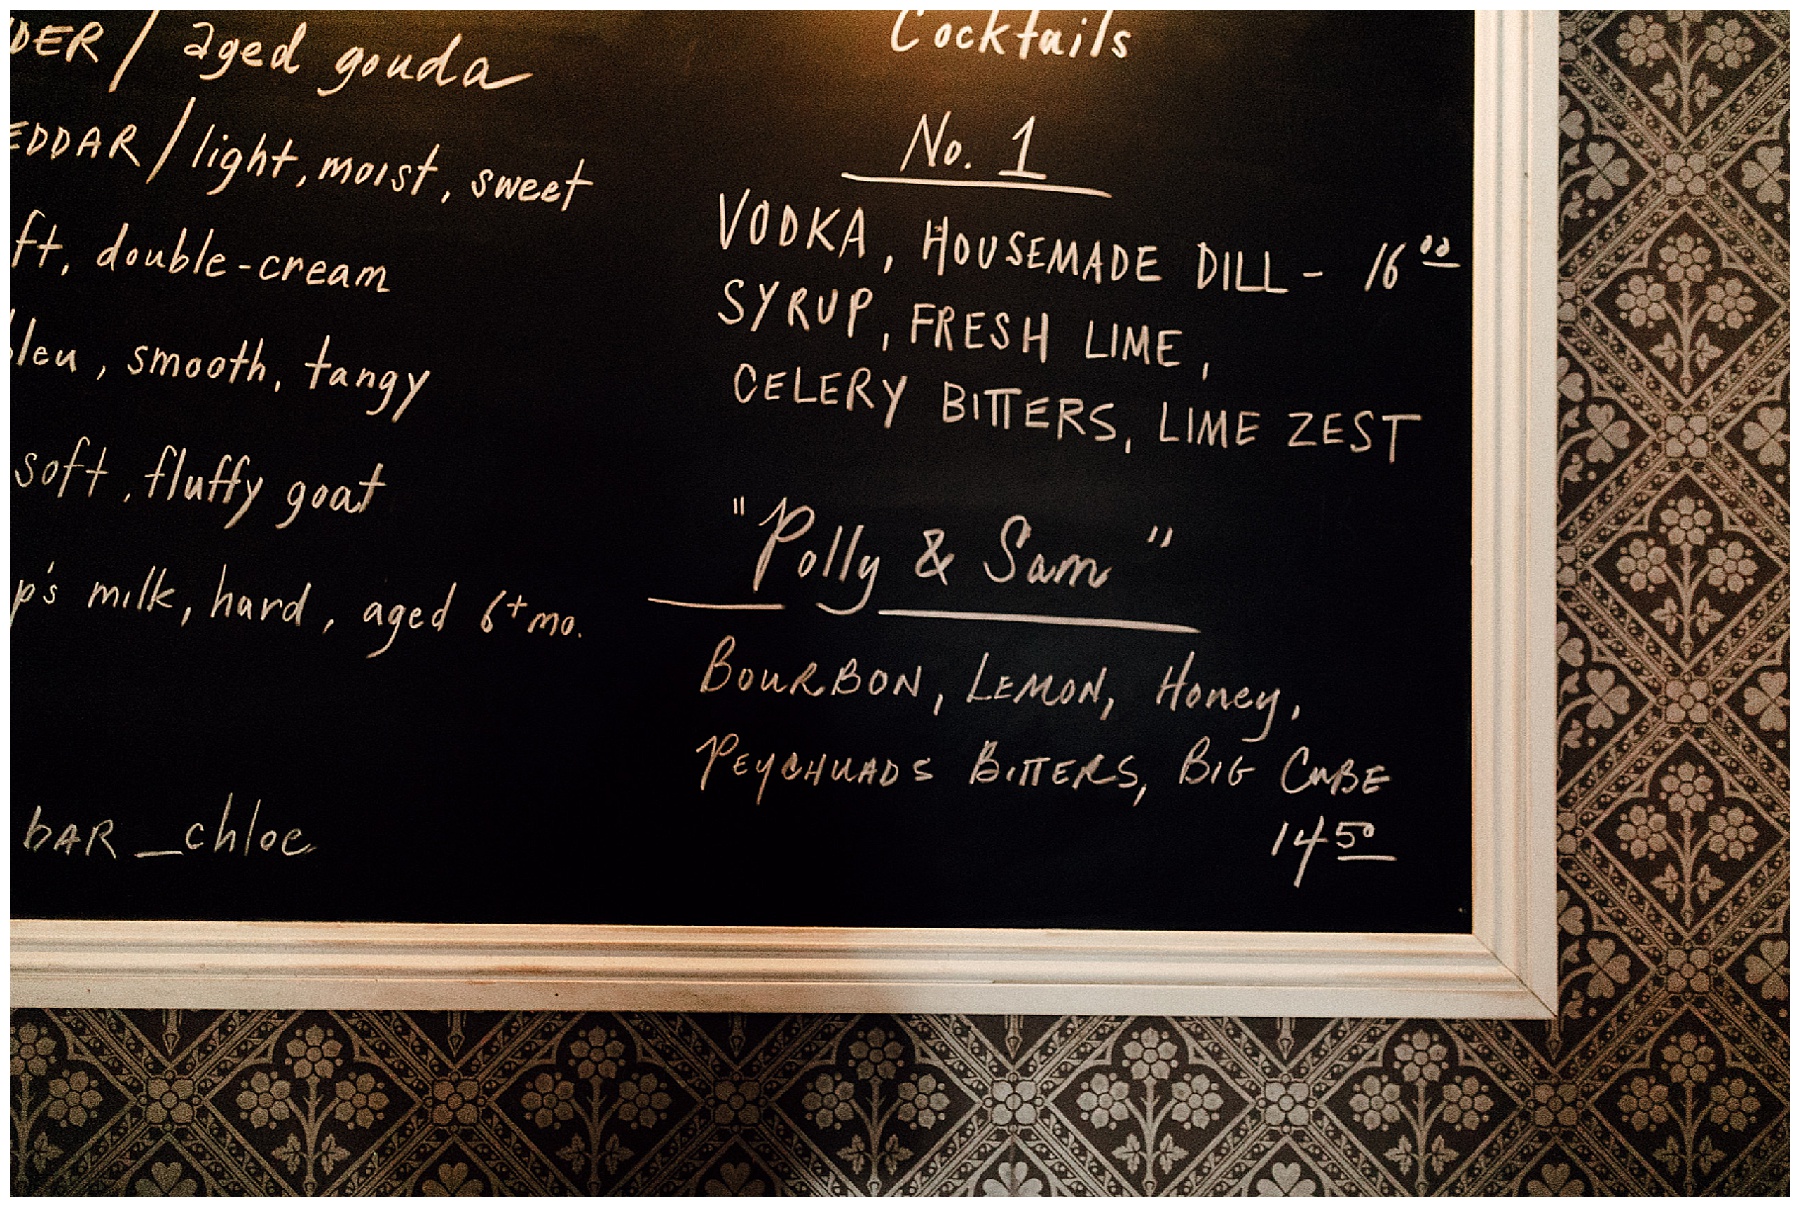 aged gouda
light, moist, sweet
double-cream
smooth, tangy
soft, fluffy goat
milk, hard, aged 6+ mo.
bAR _chloe
Cocktails
No. 1
VODKA, HOUSEMADE DILL - 16 00
SYRUP, FRESH LIME,
CELERY BITTERS, LIME ZEST
"Polly & Sam"
BOURBON, LEMON, Honey,
PEYCHUADS BITTERS, BIG CUBE
14 50